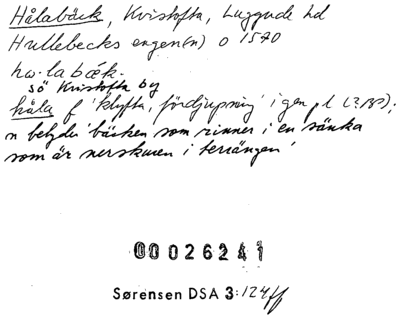 Hålabäck, Kvistofta, Luggude hd
Hullebecks engen(n) o 1570
hω·la bǽk.
sö Kvistofta by
håla f 'klyfta, fördjupning' i gen pl (?, ),
n betyder 'bäcken som rinner i en sänka
som är nerskuren i terrängen'
00026241
Sørensen DSA 3:124ff